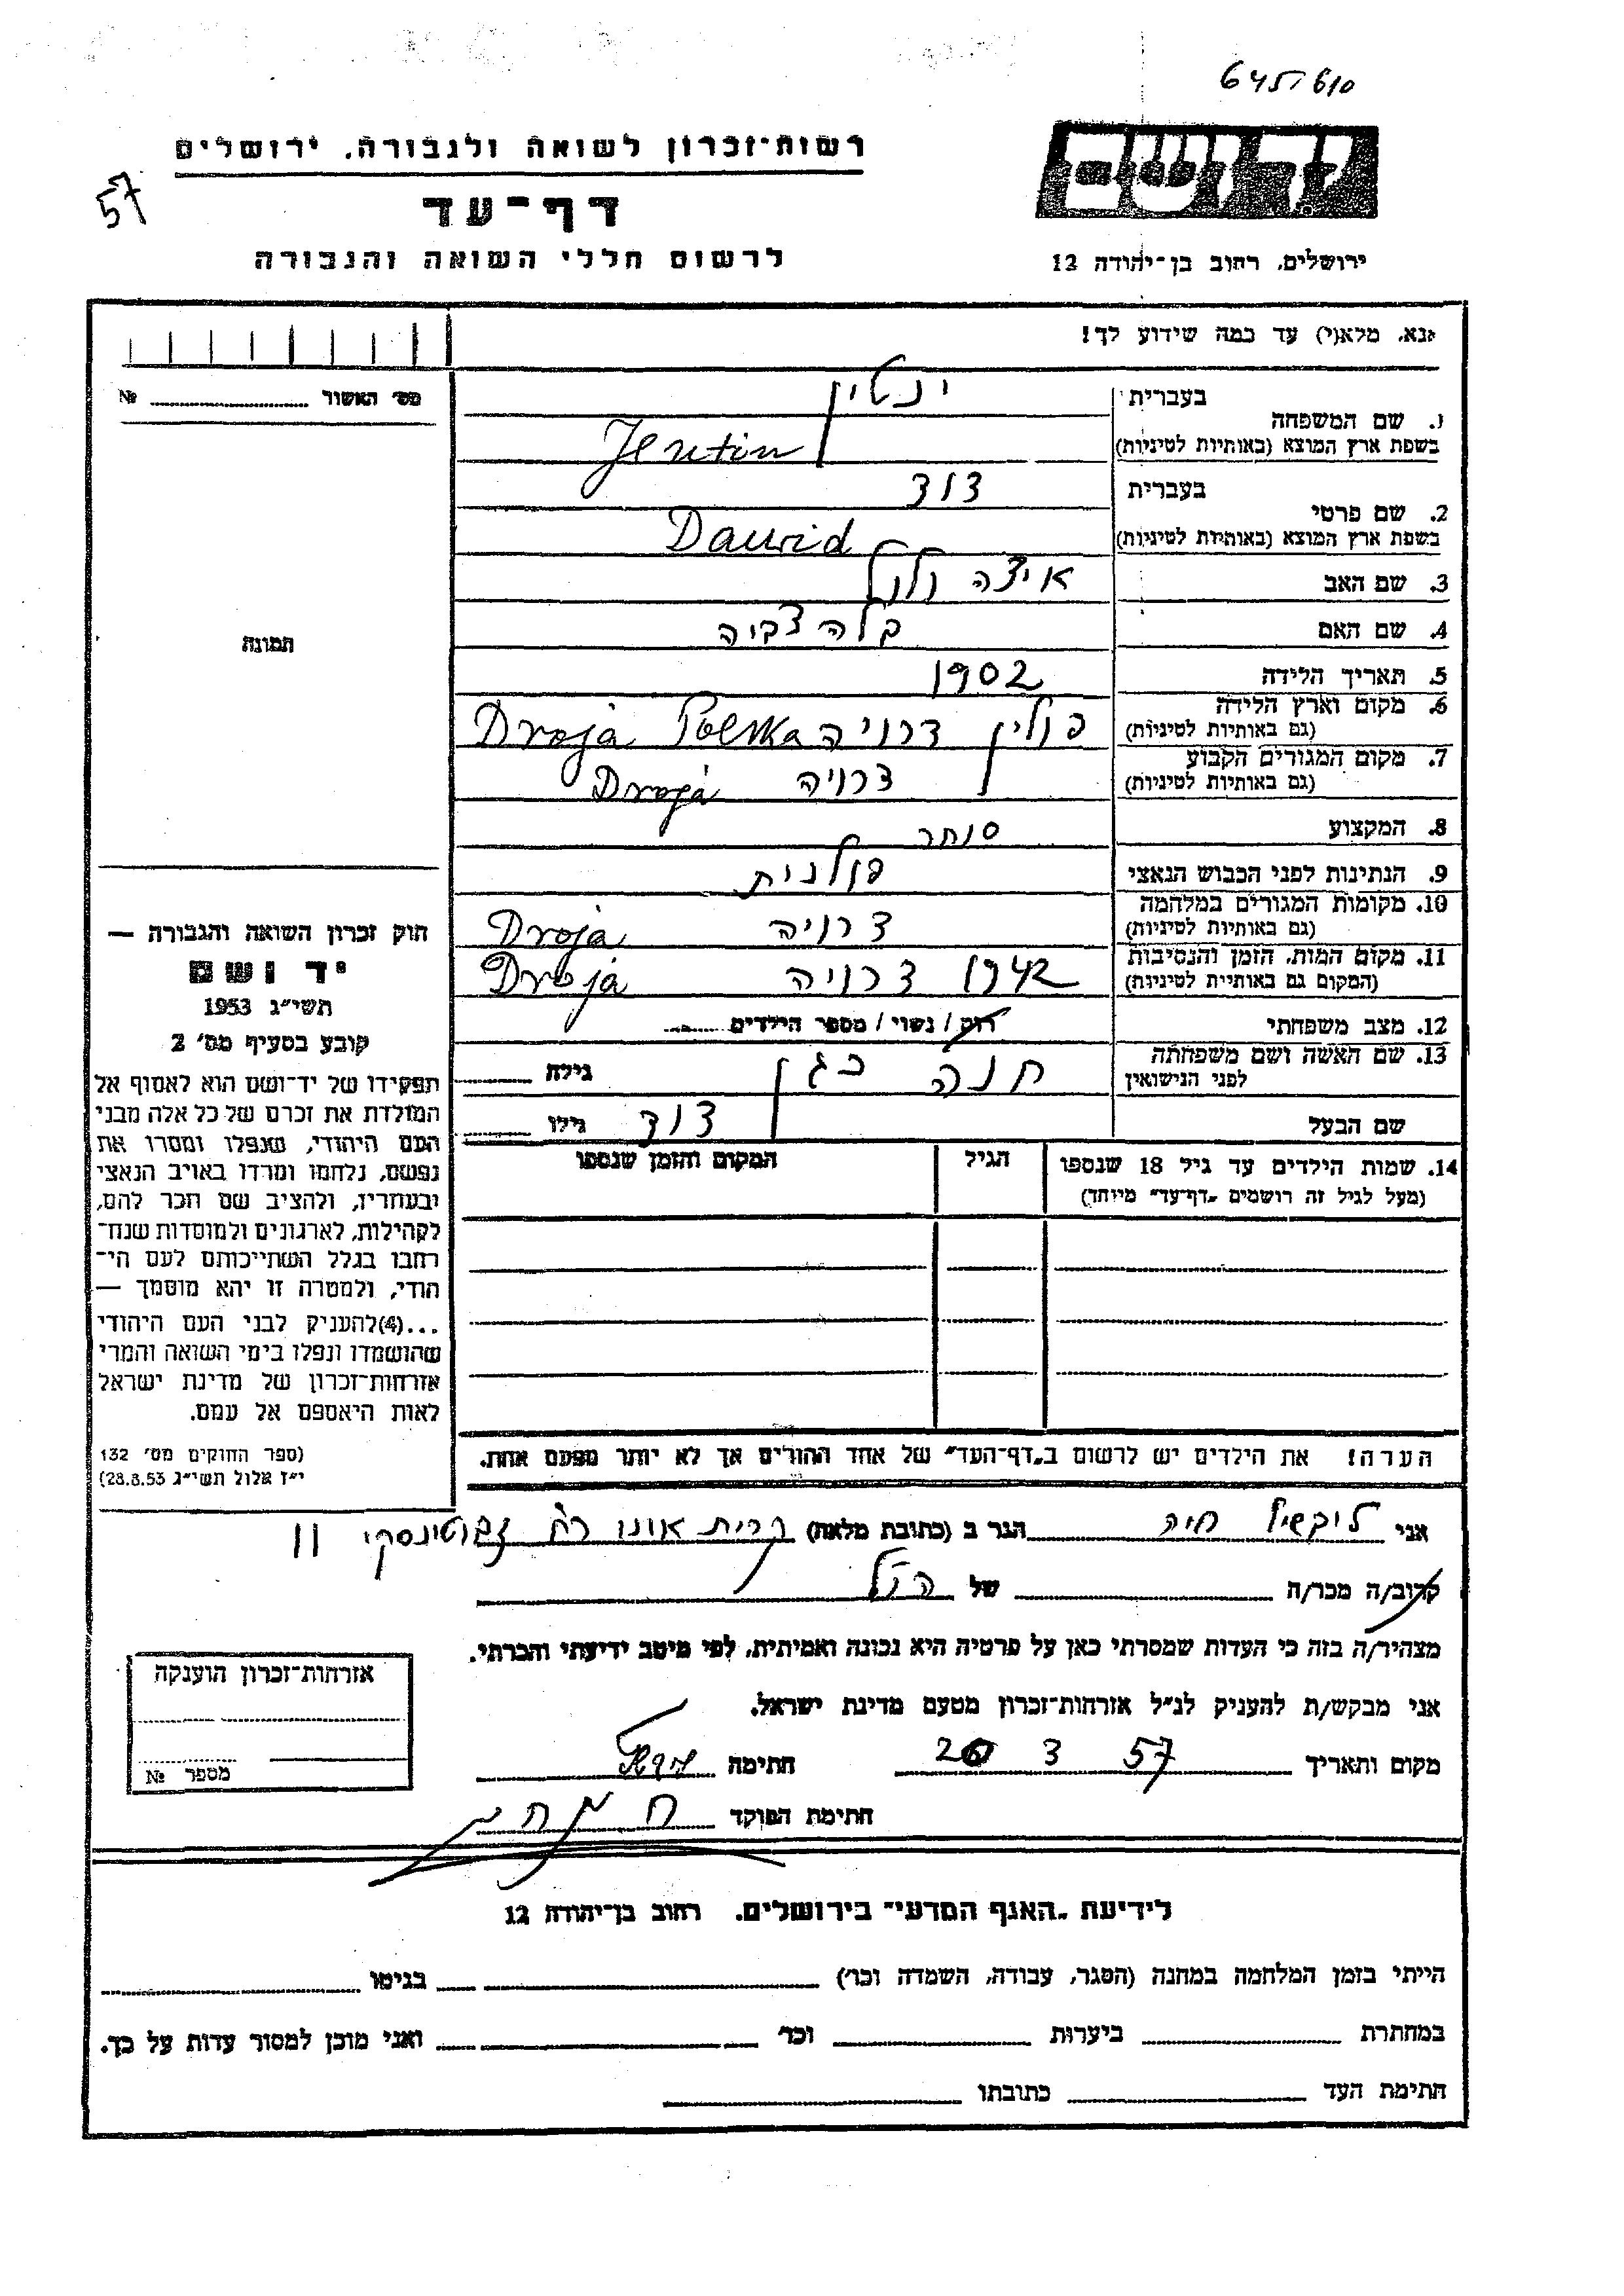 645/610
רשות־זכרון לשואה ולגבורה, ירושלים
57
דף־עד
לרשום חללי השואה והגבורה
יד ושם
ירושלים, רחוב בן־יהודה 12
נא, מלא(י) עד כמה שידוע לך!
מס׳ האשור № 
1. שם המשפחה
בעברית ינטין
בשפת ארץ המוצא (באותיות לטיניות) Jentin
2. שם פרטי
בעברית דוד
בשפת ארץ המוצא (באותיות לטיניות) Dawid
3. שם האב איצה וולף
4. שם האם בלה צביה
5. תאריך הלידה 1902
6. מקום וארץ הלידה (גם באותיות לטיניות) פולין דרויה Droja Polska
7. מקום המגורים הקבוע (גם באותיות לטיניות) דרויה Droja
8. המקצוע סוחר
9. הנתינות לפני הכבוש הנאצי פולנית
10. מקומות המגורים במלחמה (גם באותיות לטיניות) דרויה Droja
11. מקום המות, הזמן והנסיבות (המקום גם באותיית לטיניות) 1942 דרויה Droja
12. מצב משפחתי רוק / נשוי / מספר הילדים
13. שם האשה ושם משפחתה לפני הנישואין חנה כגן גילה
שם הבעל דוד גילו
תמונה
חוק זכרון השואה והגבורה —
יד ושם
תשי״ג 1953
קובע בסעיף מס׳ 2
תפקידו של יד־ושם הוא לאסוף אל
המולדת את זכרם של כל אלה מבני
העם היהודי, שנפלו ומסרו את
נפשם, נלחמו ומרדו באויב הנאצי
ובעוזריו, ולהציב שם וזכר להם,
לקהילות, לארגונים ולמוסדות שנח־
רחבו בגלל השתייכותם לעם הי־
הודי, ולמטרה זו יהא מוסמך —
...(4)להעניק לבני העם היהודי
שהושמדו ונפלו בימי השואה והמרי
אזרחות־זכרון של מדינת ישראל
לאות היאספם אל עמם.
(ספר החוקים מס׳ 132
י״ז אלול תשי״ג 28.8.53)
14. שמות הילדים עד גיל 18 שנספו
(מעל לגיל זה רושמים „דף־עד״ מיוחד)
הגיל
המקום והזמן שנספו
הערה! את הילדים יש לרשום ב„דף־העד״ של אחד ההורים אך לא יותר מפעם אחת.
אני ליבשיץ חיה הגר ב (כתובת מלאה) קרית אונו רח׳ זבוטינסקי 11
קרוב/ה מכר/ה של הנ״ל
מצהיר/ה בזה כי העדות שמסרתי כאן על פרטיה היא נכונה ואמיתית, לפי מיטב ידיעתי והכרתי.
אני מבקש/ת להעניק לנ״ל אזרחות־זכרון מטעם מדינת ישראל.
מקום ותאריך 57 3 20 חתימה
חתימת הפוקד
אזרחות־זכרון הוענקה
מספר №
לידיעת „האגף המדעי״ בירושלים, רחוב בן־יהודה 12
הייתי בזמן המלחמה במחנה (הסגר, עבודה, השמדה וכו׳) בגיטו
במחתרת ביערות וכו׳ ואני מוכן למסור עדות על כך.
חתימת העד כתובתו